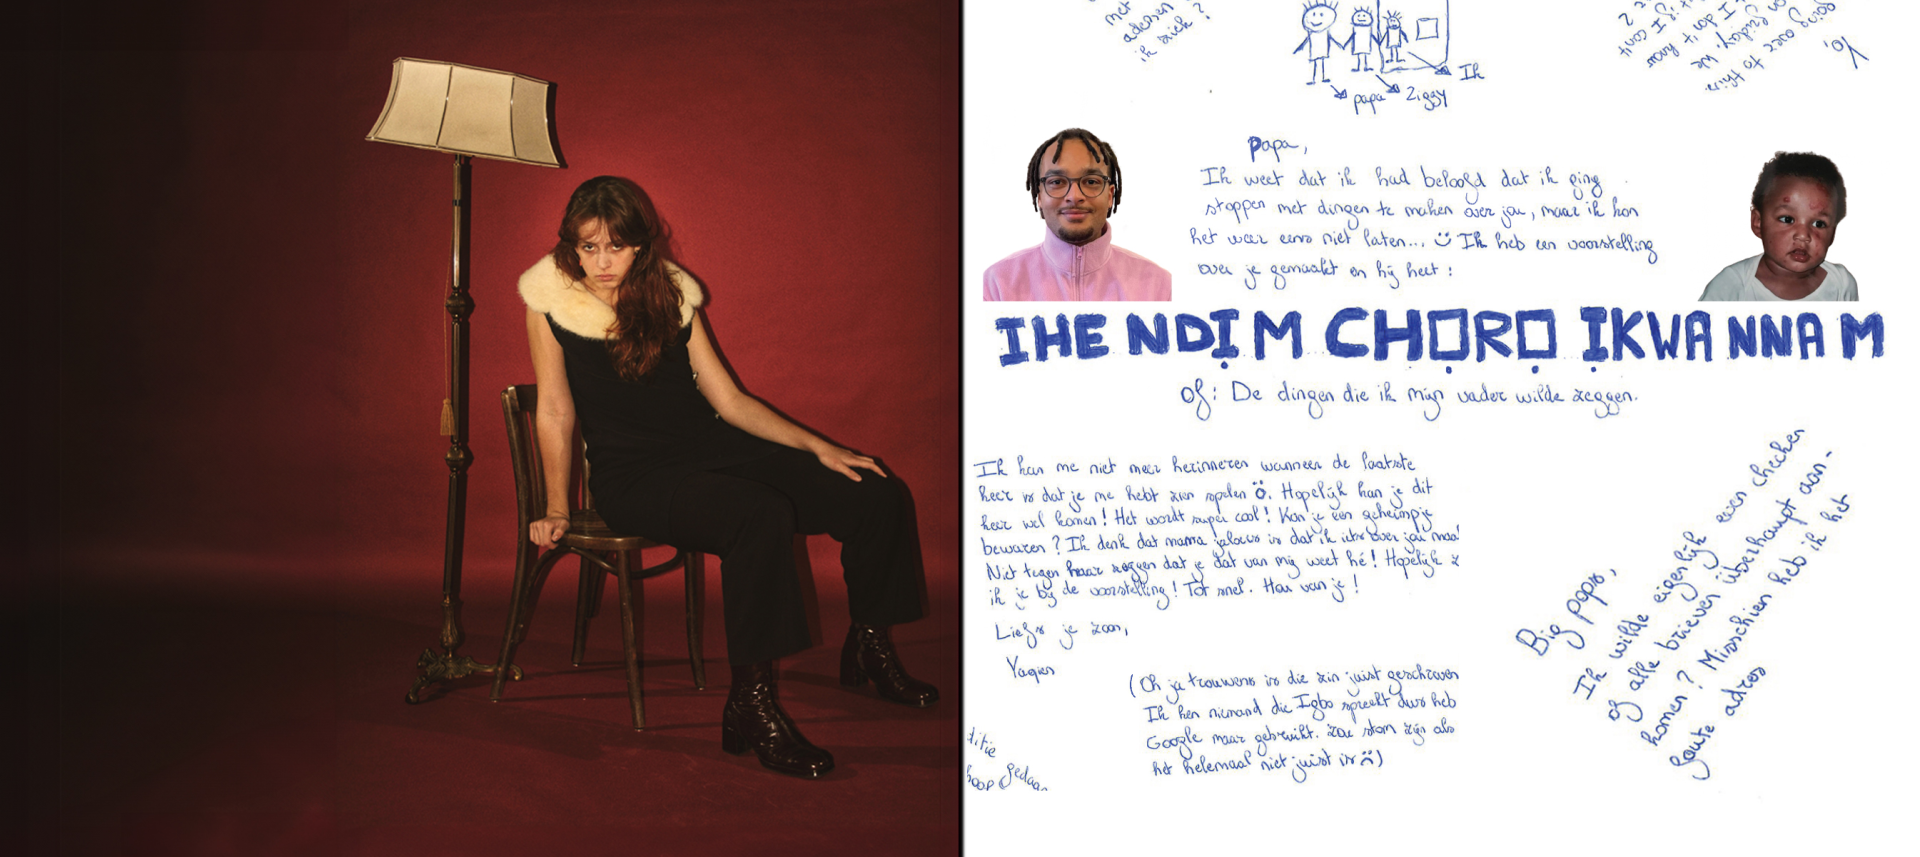 met
ademen
ik ziek?
Ik
papa
Ziggy
Yo,
Papa,
Ik weet dat ik had beloofd dat ik ging
stoppen met dingen te maken over jou, maar ik kon
het weer eens niet laten... Ik heb een voorstelling
over je gemaakt en hij heet:
IHE NDỊ M CHỌRỌ ỊKWA NNA M
of: De dingen die ik mijn vader wilde zeggen.
Ik kan me niet meer herinneren wanneer de laatste
keer is dat je me hebt zien spelen. Hopelijk kan je dit
keer wel komen! Het wordt super cool! Kan je een geheimpje
bewaren? Ik denk dat mama jaloers is dat ik iets over jou maak!
Niet tegen haar zeggen dat je dat van mij weet hé! Hopelijk z
ik je bij de voorstelling! Tot snel. Hou van je!
Liefs je zoon,
Yaqien
(Oh ja trouwens is die zin juist geschreven
Ik ken niemand die Igbo spreekt dus heb
Google maar gebruikt. Zou stom zijn als
het helemaal niet juist is)
Big pops,
Ik wilde eigenlijk even checken
of alle brieven überhaupt aan-
komen? Misschien heb ik het
foute adres
ditie
hoop gedaan